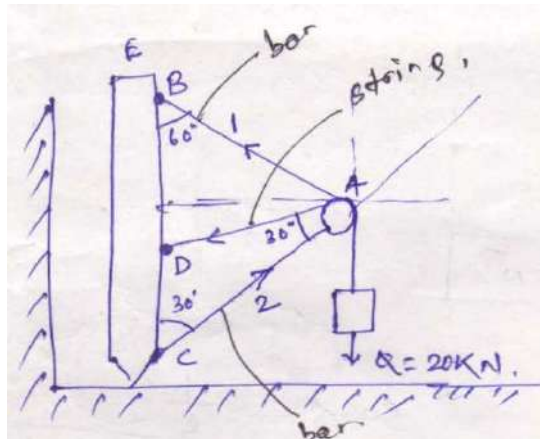 E
B
bar
string.
1
60°
A
30°
D
30°
2
C
Q = 20KN.
bar